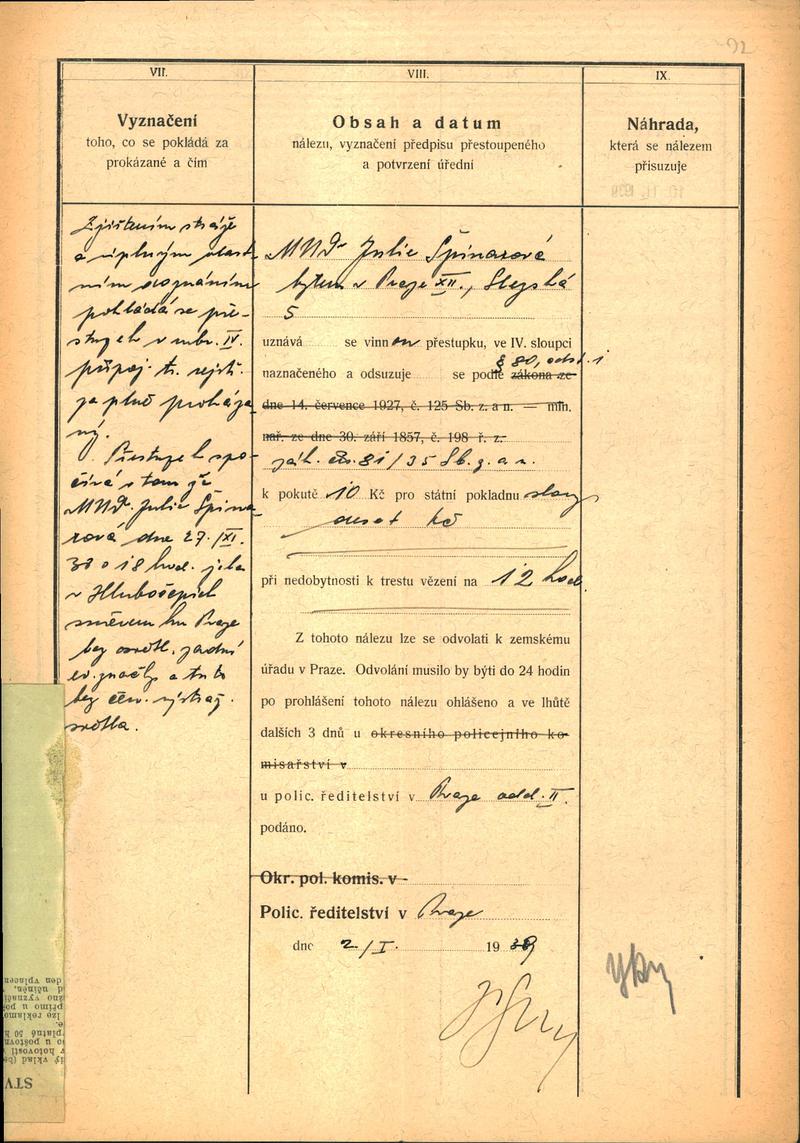 92
VII.
Vyznačení
toho, co se pokládá za
prokázané a čím
Zjištěním stráže
a úplným vlast-
ním doznáním
pokládá se pře-
stupek v rubr. IV.
připoj. tr. rejstř.
za plně prokáza-
ný.
Přestupek spo-
čívá v tom, že
MUDr. Julie Špina-
rová dne 27./XI.
38 o 18 hod. jela
v Hlubočepích
směrem ku Praze
bez osvětl. zadní
ev. značky a tu to
bez červ. výstraž.
světla.
VIII.
Obsah a datum
nálezu, vyznačení předpisu přestoupeného
a potvrzení úřední
MUDr Julie Špinarová
bytem v Praze XII., Slezská
5
uznává se vinnou přestupku, ve IV. sloupci
§ 80, odst. 1
naznačeného a odsuzuje se podle zákona ze
dne 14. července 1927, č. 125 Sb. z. a n. — min.
nař. ze dne 30. září 1857, č. 198 ř. z.
zák. čís. 81/35 Sb. z. a n.
k pokutě 10 Kč pro státní pokladnu slovy
deset Kč
při nedobytnosti k trestu vězení na 12 hod.
Z tohoto nálezu lze se odvolati k zemskému
úřadu v Praze. Odvolání musilo by býti do 24 hodin
po prohlášení tohoto nálezu ohlášeno a ve lhůtě
dalších 3 dnů u okresního policejního ko-
misařství v
u polic. ředitelství v Praze odd. II.
podáno.
Okr. pol. komis. v
Polic. ředitelství v Praze
dne 2./I. 1939
IX.
Náhrada,
která se nálezem
přisuzuje